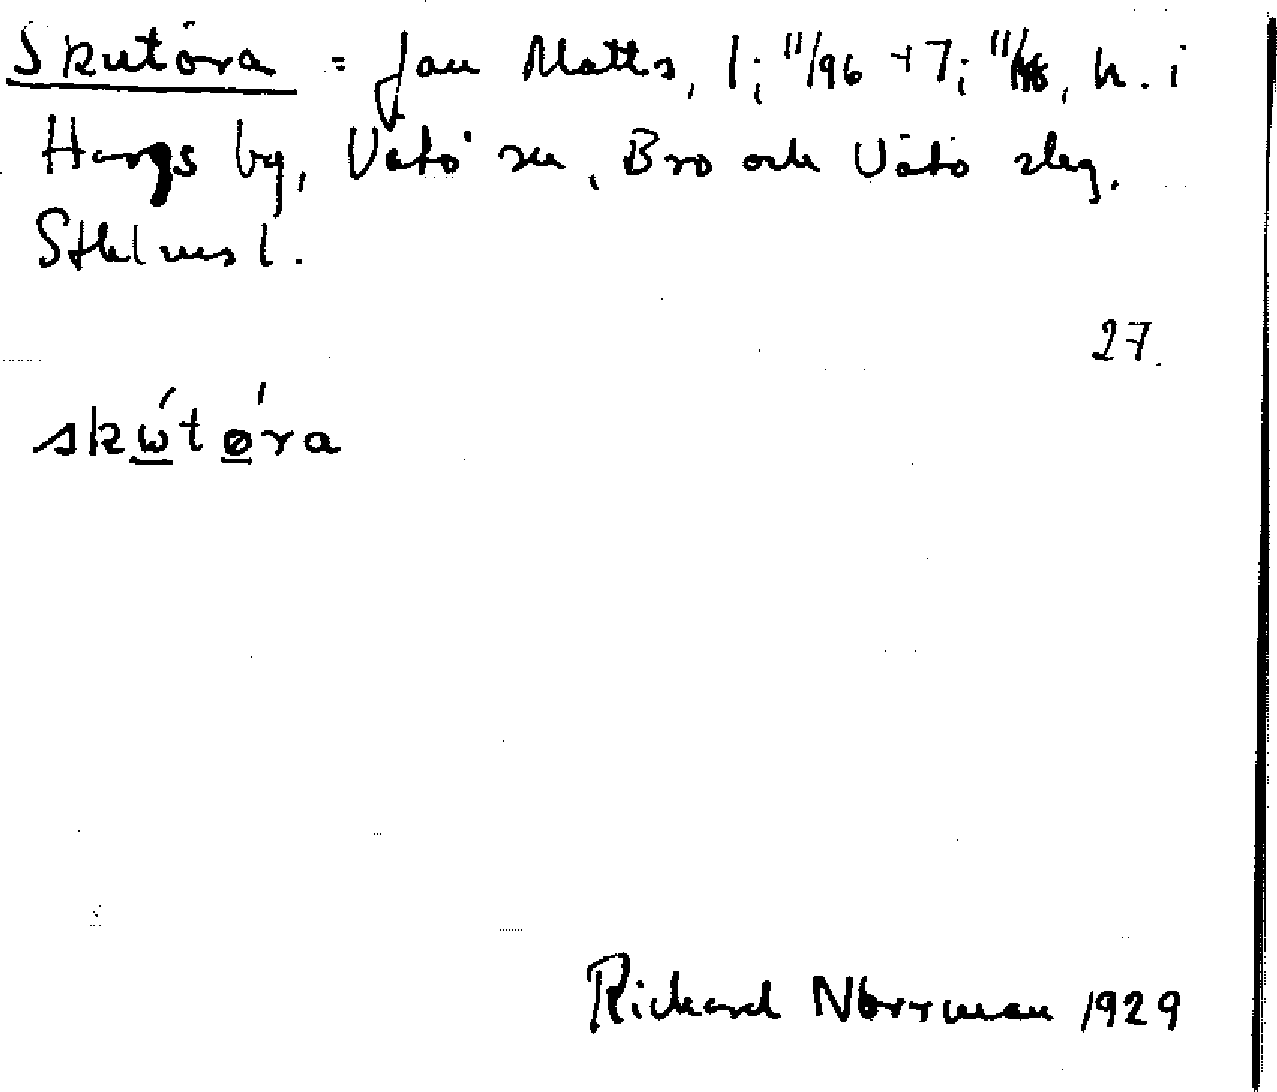 Skutöra = Jan Matts, 1; 11/96 + 7; 11/, h. i
Hargs by, Vätö sn, Bro och Vätö slg.
Sthlms l.
27.
skώtǿra
Richard Norrman 1929